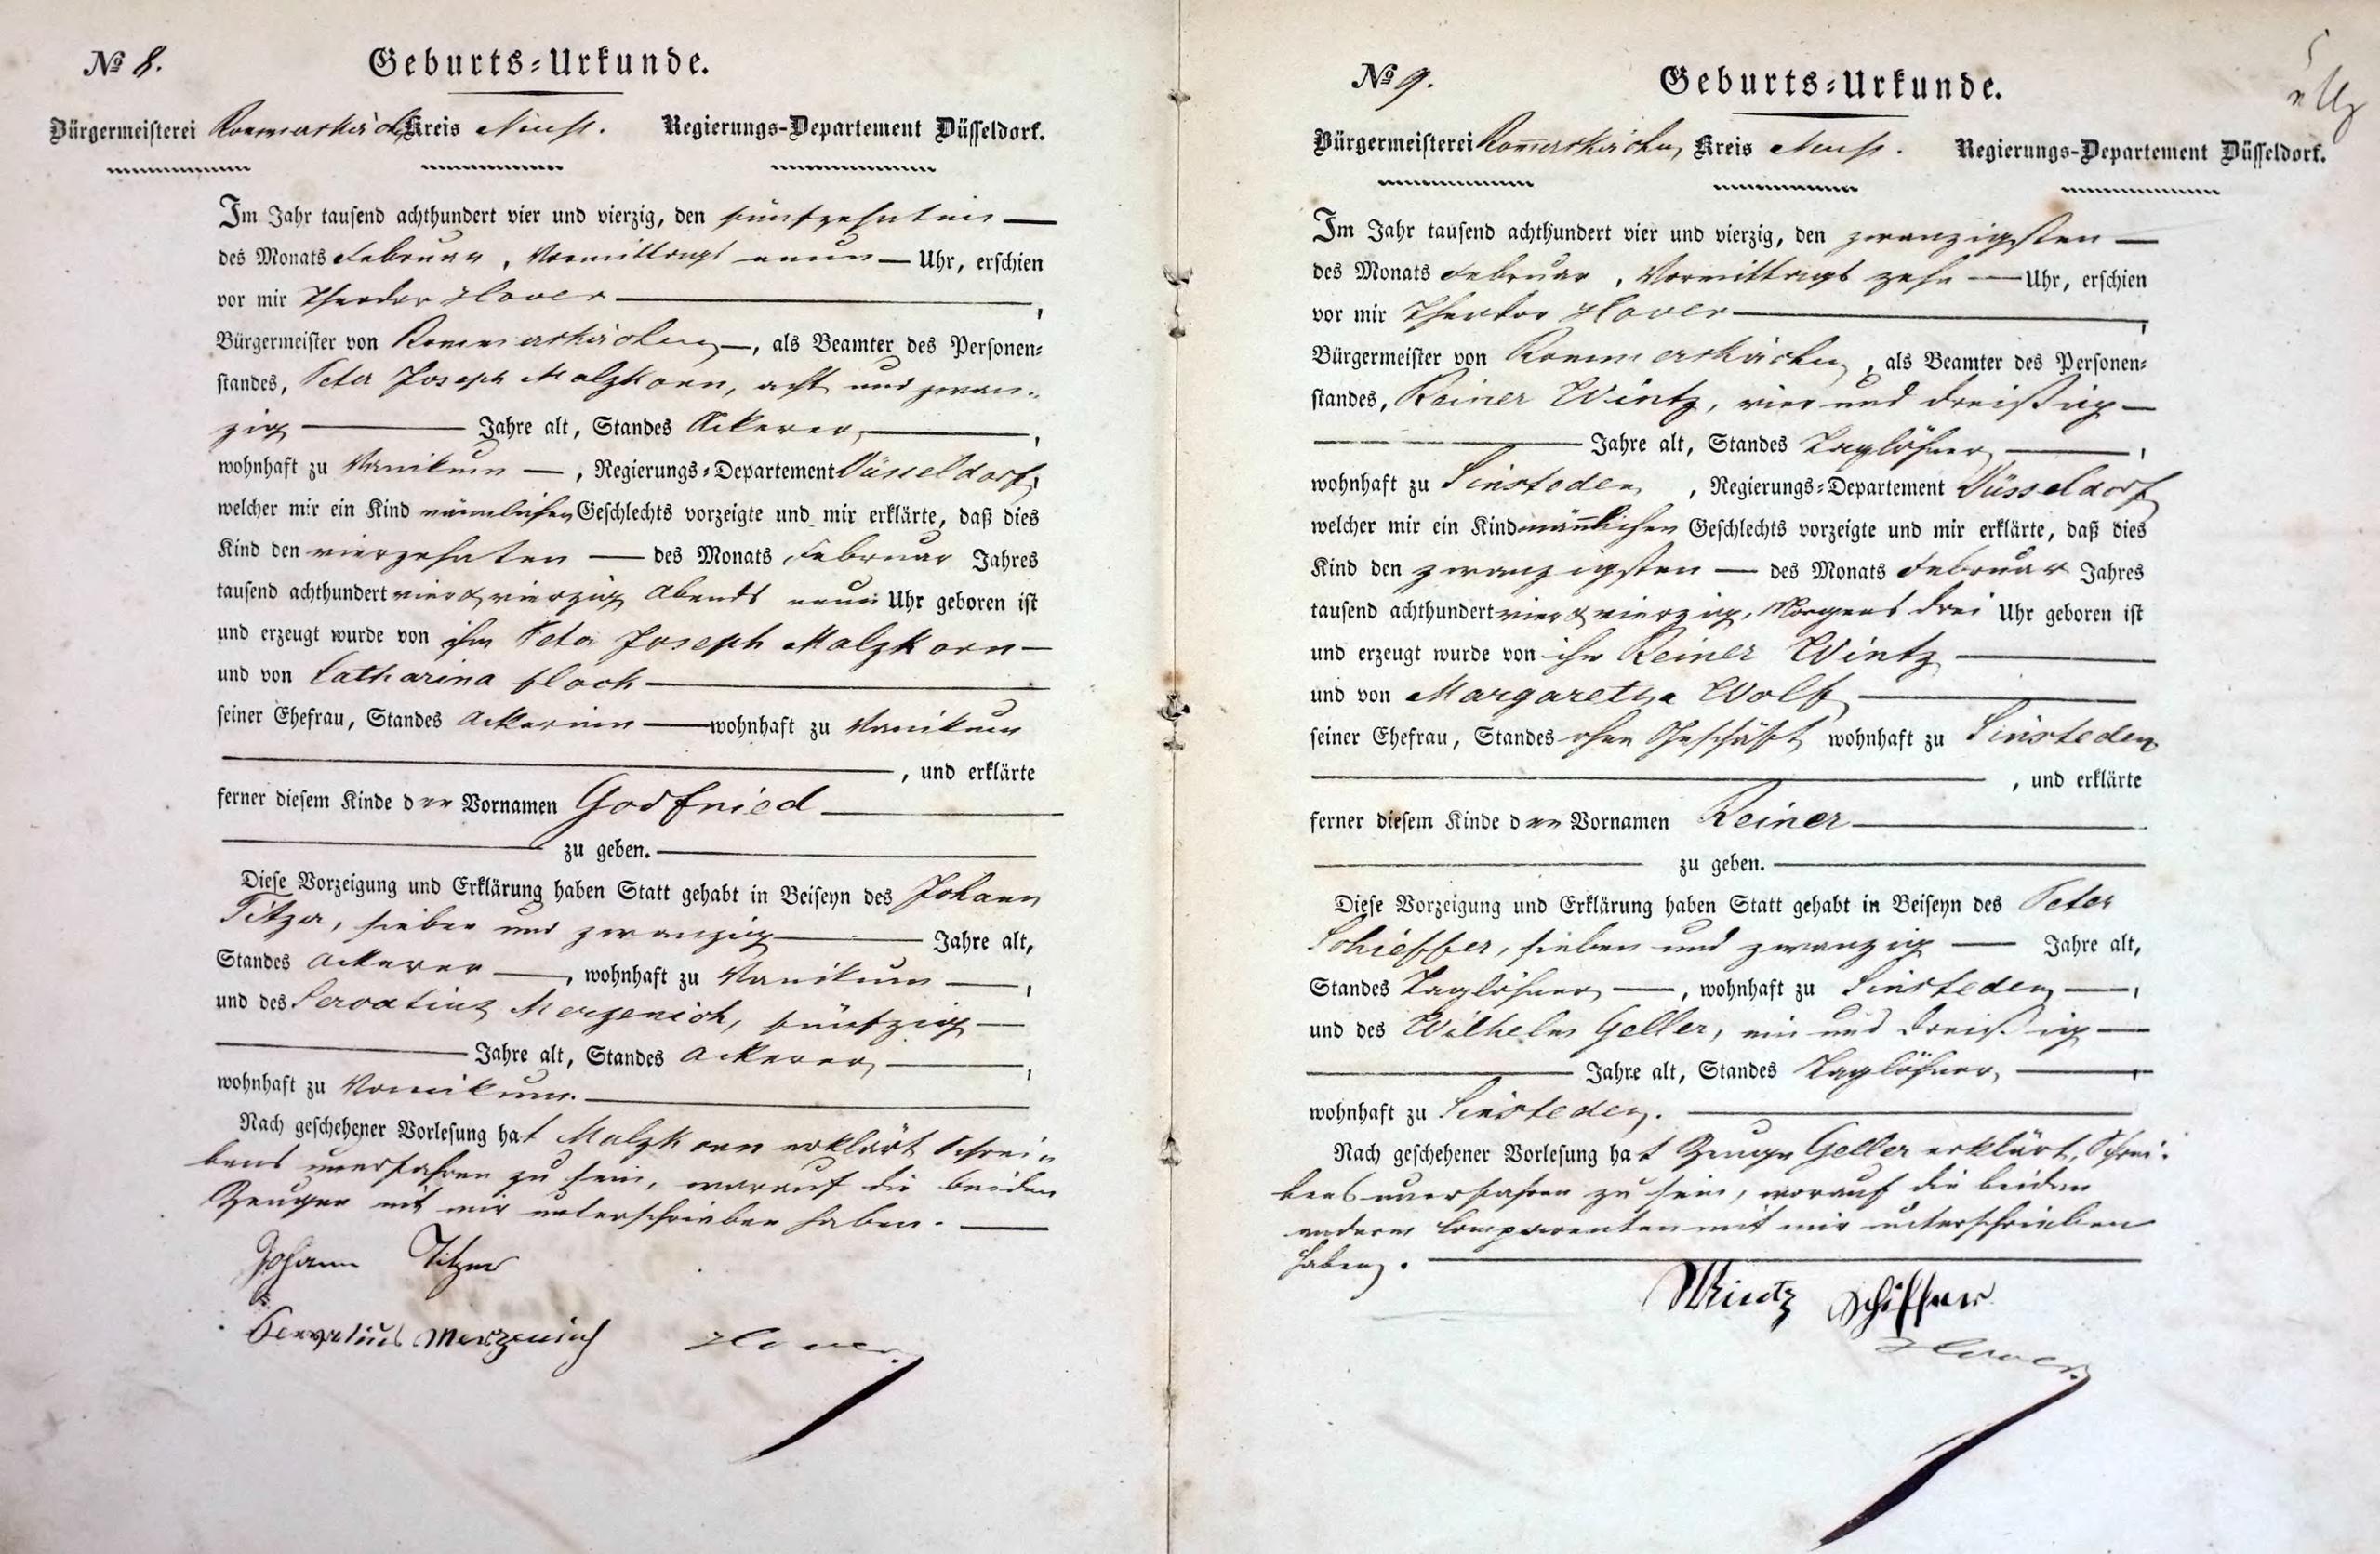 № 8.
Geburts-Urkunde.
Bürgermeisterei Rommerskirchen Kreis Neuß. Regierungs-Departement Düsseldorf.
Im Jahr tausend achthundert vier und vierzig, den fünfzehnten
des Monats Februar, Vormittags neun Uhr, erschien
vor mir Theodor Hover,
Bürgermeister von Rommerskirchen, als Beamter des Personen-
standes, Peter Joseph Malzkorn, acht und zwan-
zig Jahre alt, Standes Ackerer,
wohnhaft zu Vanikum, Regierungs-Departement Düsseldorf,
welcher mir ein Kind männlichen Geschlechts vorzeigte und mir erklärte, daß dies
Kind den vierzehnten des Monats Februar Jahres
tausend achthundert vier & vierzig Abends neun Uhr geboren ist
und erzeugt wurde von ihm Peter Joseph Malzkorn
und von Catharina Flock
seiner Ehefrau, Standes Ackerinn wohnhaft zu Vanikum
, und erklärte
ferner diesem Kinde den Vornamen Godfried
zu geben.
Diese Vorzeigung und Erklärung haben Statt gehabt in Beiseyn des Johann
Titzer, sieben und zwanzig Jahre alt,
Standes Ackerer, wohnhaft zu Vanikum,
und des Servatius Merzenich, fünfzig
Jahre alt, Standes Ackerer,
wohnhaft zu Vanikum.
Nach geschehener Vorlesung hat Malzkorn erklärt Schrei-
bens unerfahren zu sein, worauf die beiden
Zeugen mit mir unterschrieben haben.
Johann Titzer
Servatius Merzenich Hover
№ 9.
Geburts-Urkunde.
Bürgermeisterei Rommerskirchen Kreis Neuß. Regierungs-Departement Düsseldorf.
Im Jahr tausend achthundert vier und vierzig, den zwanzigsten
des Monats Februar, Vormittags zehn Uhr, erschien
vor mir Theodor Hover,
Bürgermeister von Rommerskirchen, als Beamter des Personen-
standes, Reiner Wintz, vier und dreißig
Jahre alt, Standes Taglöhner,
wohnhaft zu Sinsteden, Regierungs-Departement Düsseldorf
welcher mir ein Kind männlichen Geschlechts vorzeigte und mir erklärte, daß dies
Kind den zwanzigsten des Monats Februar Jahres
tausend achthundert vier & vierzig, Morgens drei Uhr geboren ist
und erzeugt wurde von ihm Reiner Wintz
und von Margaretha Wolf
seiner Ehefrau, Standes ohne Geschäft wohnhaft zu Sinsteden
, und erklärte
ferner diesem Kinde den Vornamen Reiner
zu geben.
Diese Vorzeigung und Erklärung haben Statt gehabt in Beiseyn des Peter
Schieffer, sieben und zwanzig Jahre alt,
Standes Taglöhner, wohnhaft zu Sinsteden,
und des Wilhelm Geller, ein und dreißig
Jahre alt, Standes Taglöhner,
wohnhaft zu Sinsteden.
Nach geschehener Vorlesung hat Zeuge Geller erklärt, Schrei-
bens unerfahren zu sein, worauf die beiden
anderen Comparenten mit mir unterschrieben
haben.
Wintz Schiffer
Hover